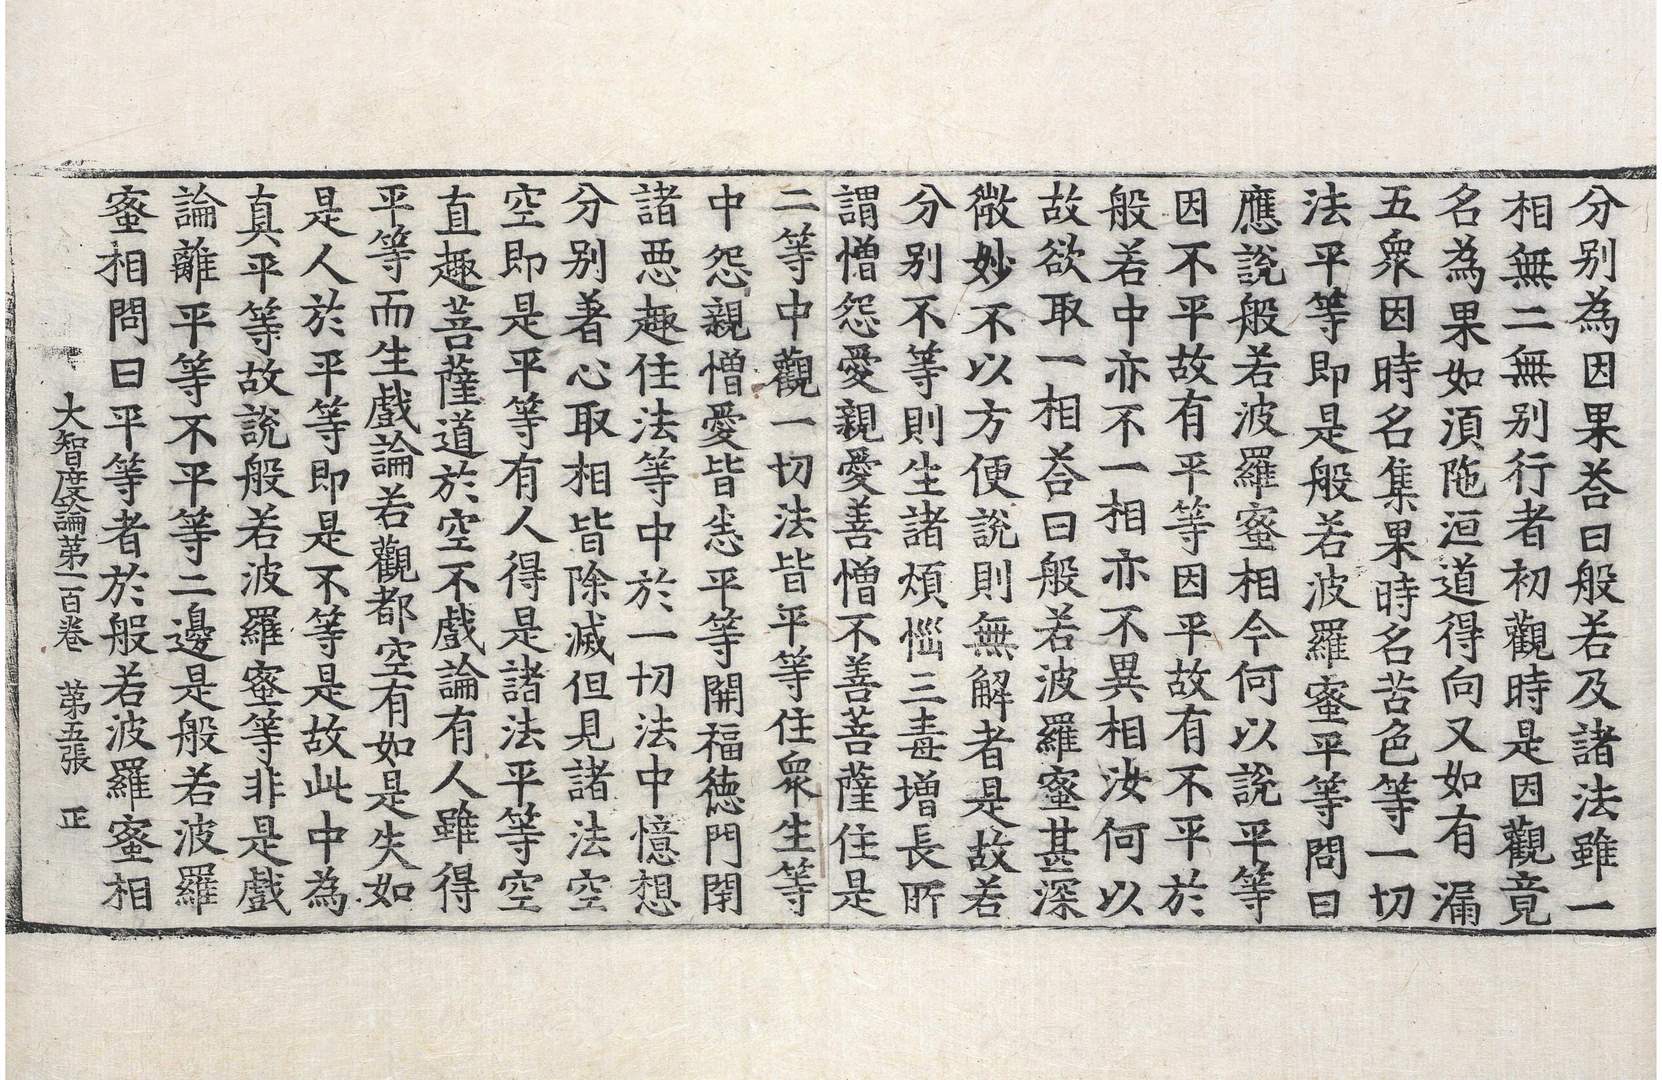 分别為因果荅曰般若及諸法雖一
相無二無别行者初觀時是因觀竟
名為果如湏陁洹道得向又如有漏
五衆因時名集果時名苦色等一切
法平等即是般若波羅蜜平等問曰
應說般若波羅蜜相今何以說平等
因不平故有平等因平故有不平於
般若中亦不一相亦不異相汝何以
故欲取一相荅曰般若波羅蜜甚深
微妙不以方便說則無解者是故若
分别不等則生諸煩惱三毒增長所
謂憎怨愛親愛善憎不善菩薩住是
二等中觀一切法皆平等住衆生等
中怨親憎愛皆悉平等開福德門閇
諸惡趣住法等中於一切法中憶想
分别著心取相皆除滅但見諸法空
空即是平等有人得是諸法平等空
直趣菩薩道於空不戲論有人雖得
平等而生戲論若觀都空有如是失如
是人於平等即是不等是故此中為
真平等故說般若波羅蜜等非是戲
論離平等不平等二邊是般若波羅
蜜相問曰平等者於般若波羅蜜相
大智度論第一百卷 第五張 正